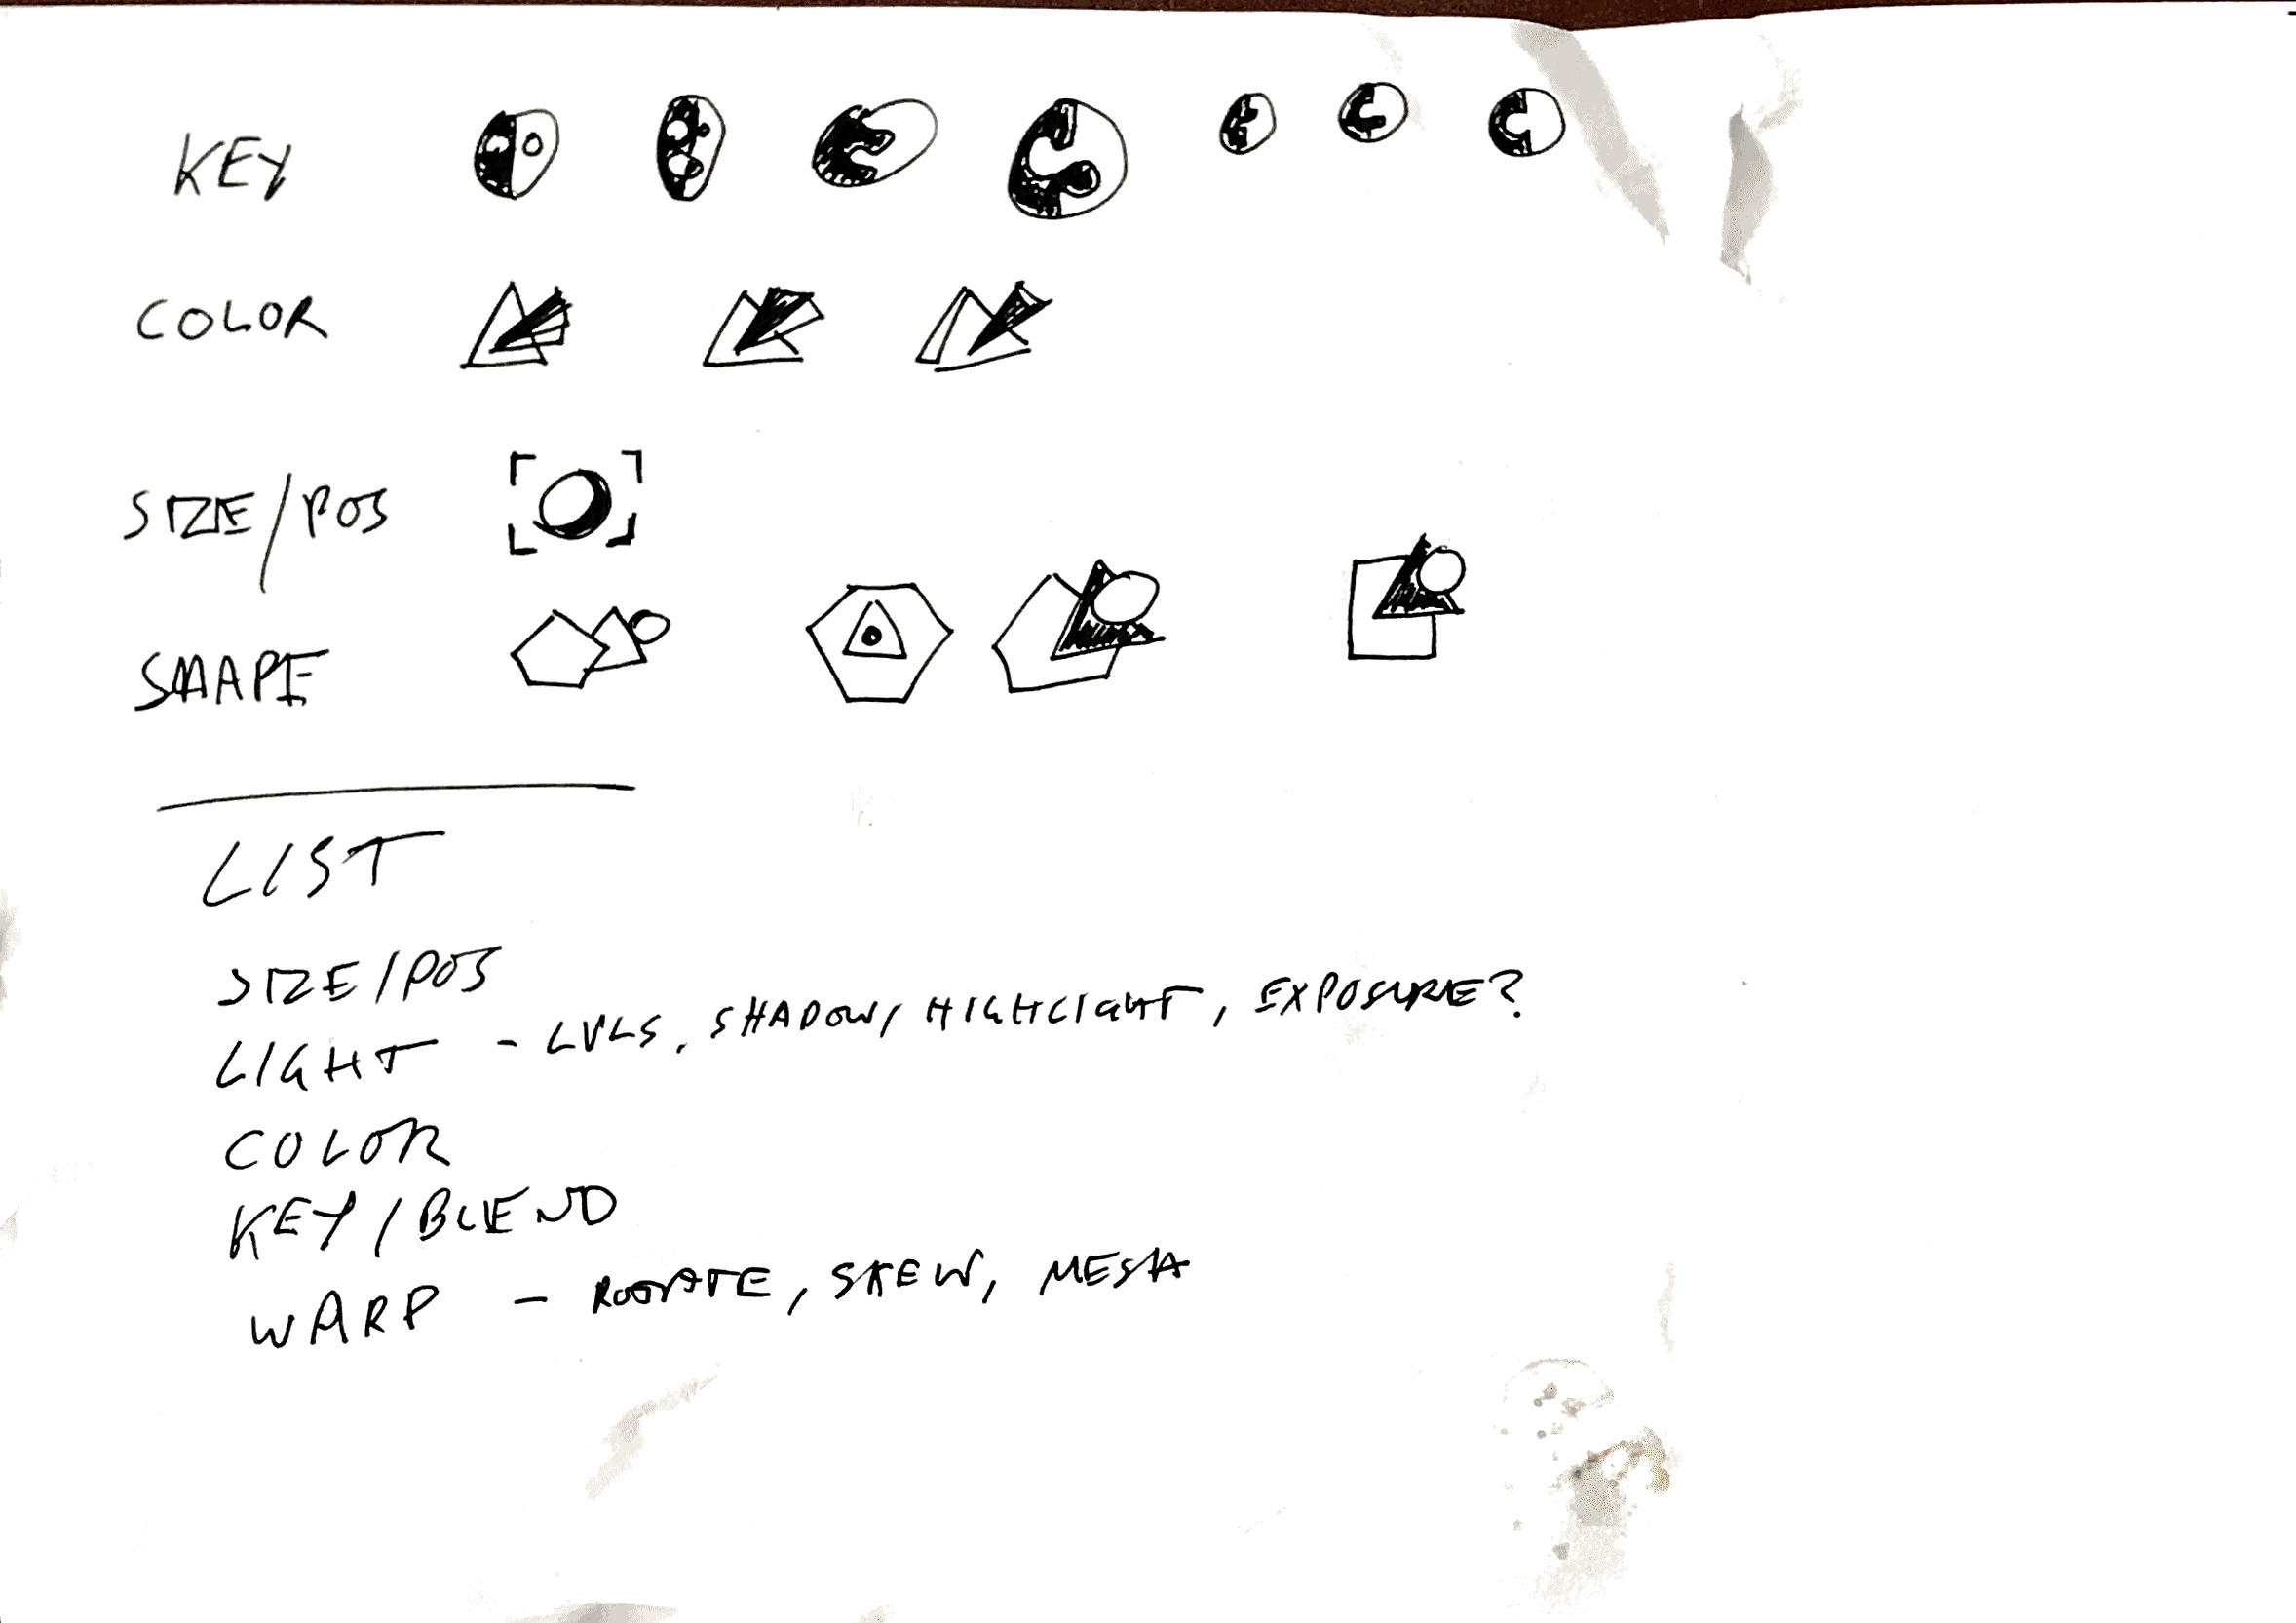 KEY
COLOR
SIZE/POS
SHAPE
LIST
SIZE/POS
LIGHT - LVLS, SHADOW, HIGHLIGHT, EXPOSURE?
COLOR
KEY/BLEND
WARP - ROTATE, SKEW, MESH